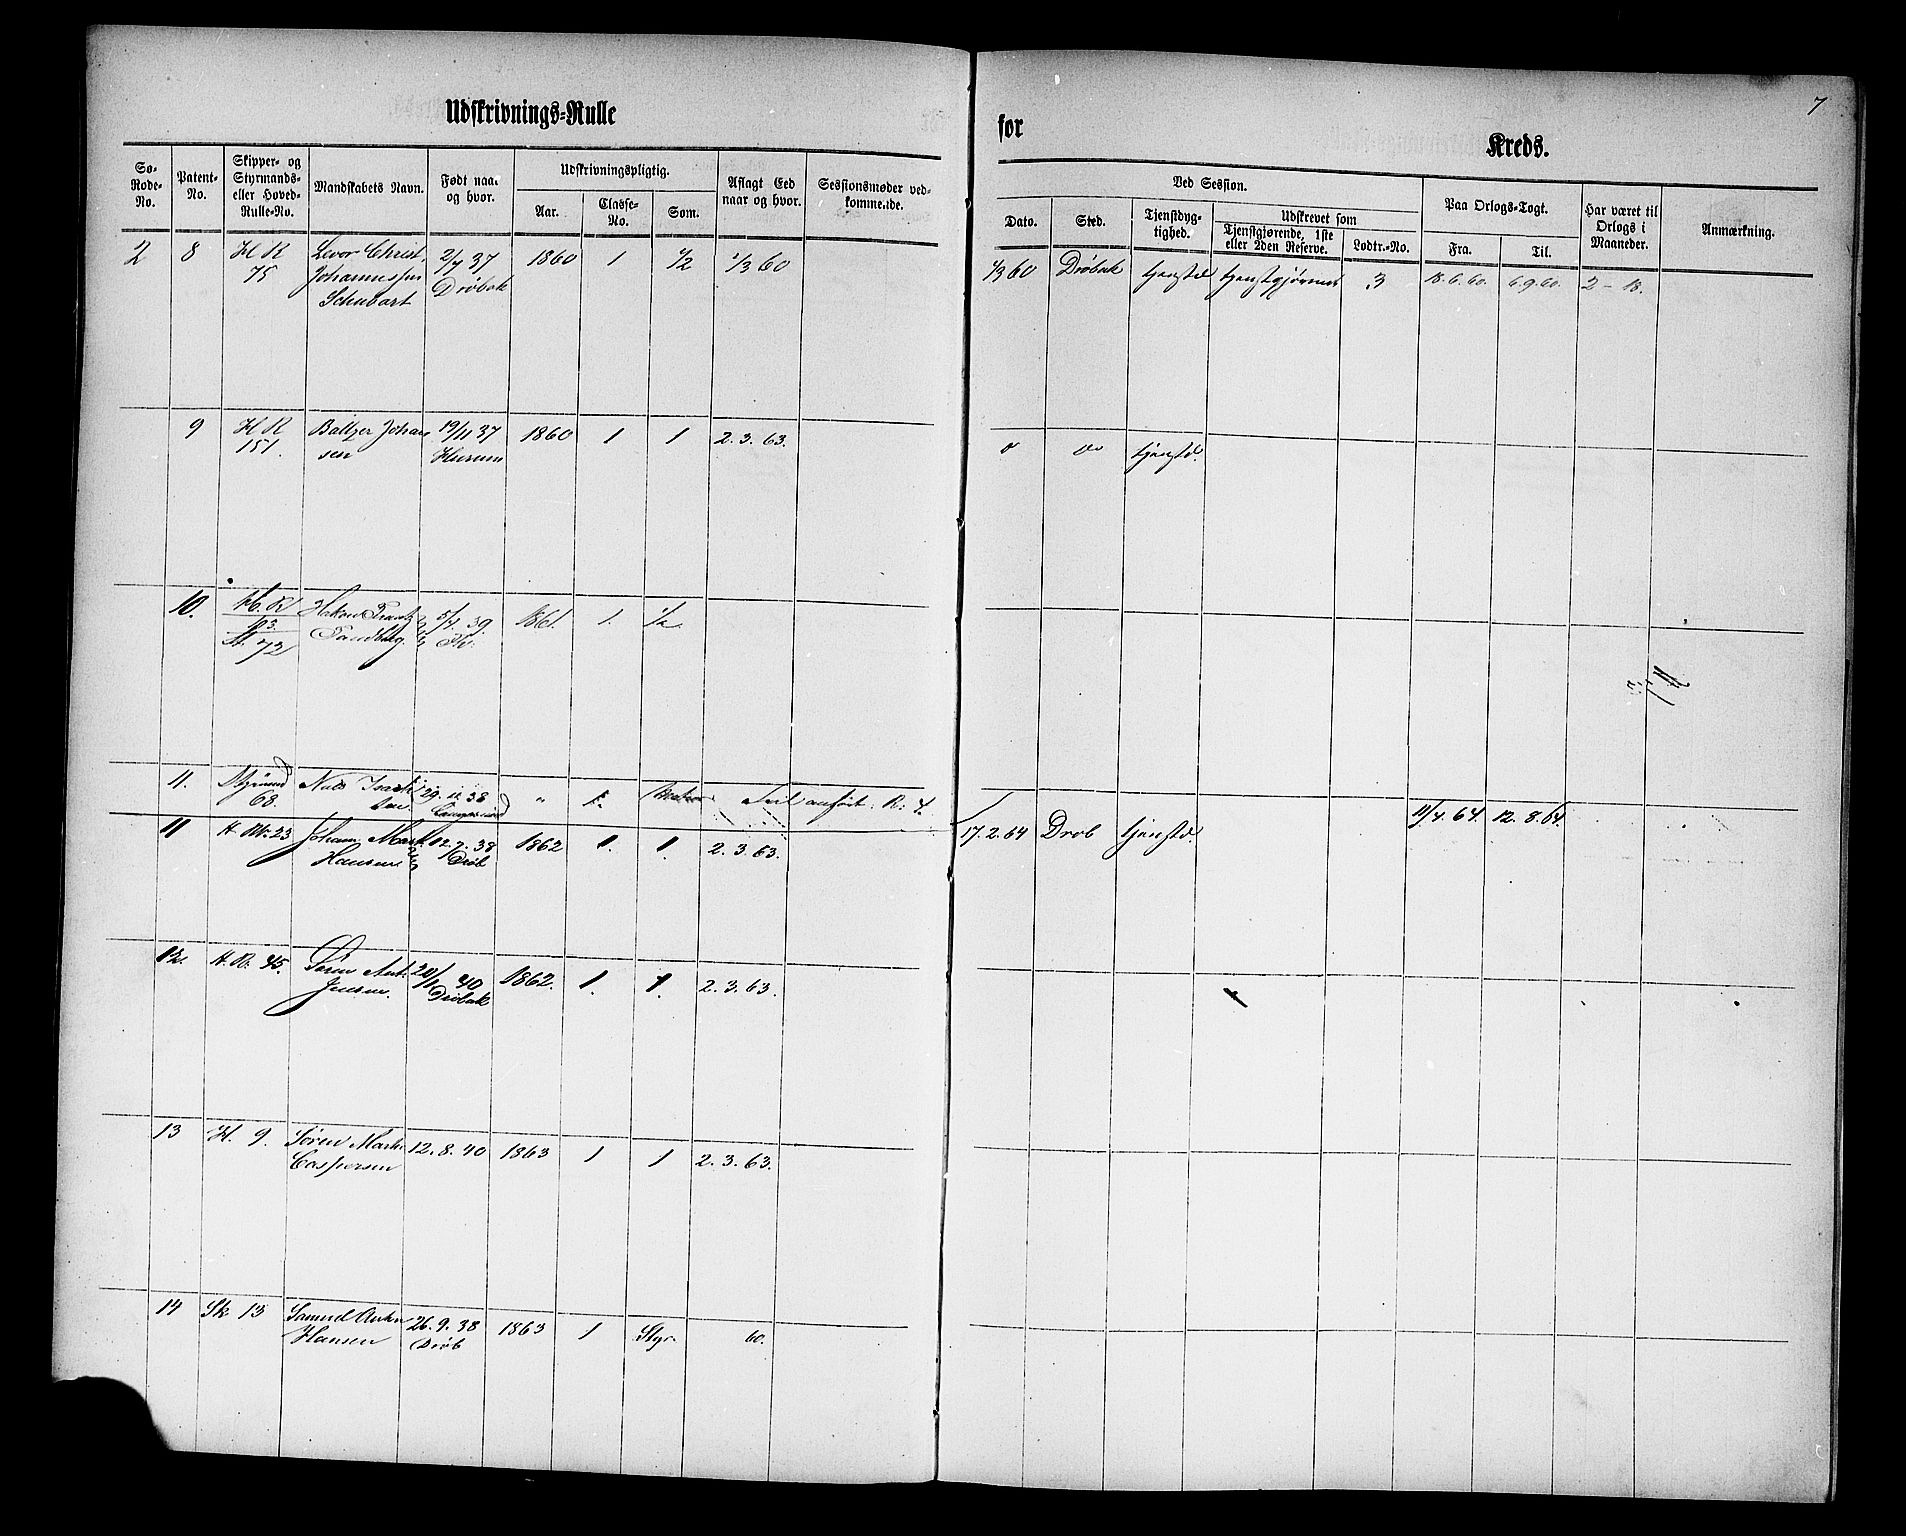 7
Udskrivnings-Rulle
for
Kreds.
So-Rode-No.
Patent-No.
Skipper- og Styrmands- eller Hoved-Rulle-No.
Mandskabets Navn.
Født naar og hvor.
Udskrivningspligtig.
Aar.
Classe-No.
Som.
Aflagt Eed naar og hvor.
Sessionsmøder vedkommende.
Ved Session.
Dato.
Sted.
Tjenstdygtighed.
Udskrevet som
Tjenstgjørende, 1ste eller 2den Reserve.
Lodtr.-No.
Paa Orlogs-Togt.
Fra.
Til.
Har været til Orlogs i Maaneder.
Anmærkning.
2 8 H R 75 Levor Christ. Johannessen Schubart 2/7 37 Drøbak 1860 1 1/2 1/3 60
1/3 60 Drøbak tjenstd tjenstgjørende 3 18.6.60. 6.9.60. 2 - 18.
9 H R 151. Baltzer Johansen 19/11 37 Hurum 1860 1 1 2.3.63.
do tjenstd.
10. H. R 93. St. 72 Hakon Sandberg. 5/7. 39. 1861. 1. 1/2
11. Styrmd 68. Nils Isaksen 29. 38 Langesund " 1. anført. R: 4.
11 H. R. 23 Johan Mart. Hansen 12.7.38 Drøb 1862 1. 1. 2.3.63.
17.2.64 Drøb tjenstd. 11/4.64. 12.8.64.
12. H. R. 45. Søren Ant. Jensen. 20/1 40 Drøbak 1862. 1. 1. 2.3.63.
13 H. 9. Søren Martin Caspersen 12.8.40 1863 1 1 2.3.63.
14 Sk 13 Samuel Anton Hansen 26.9.38 Drøb 1863 1 Styr. 60.